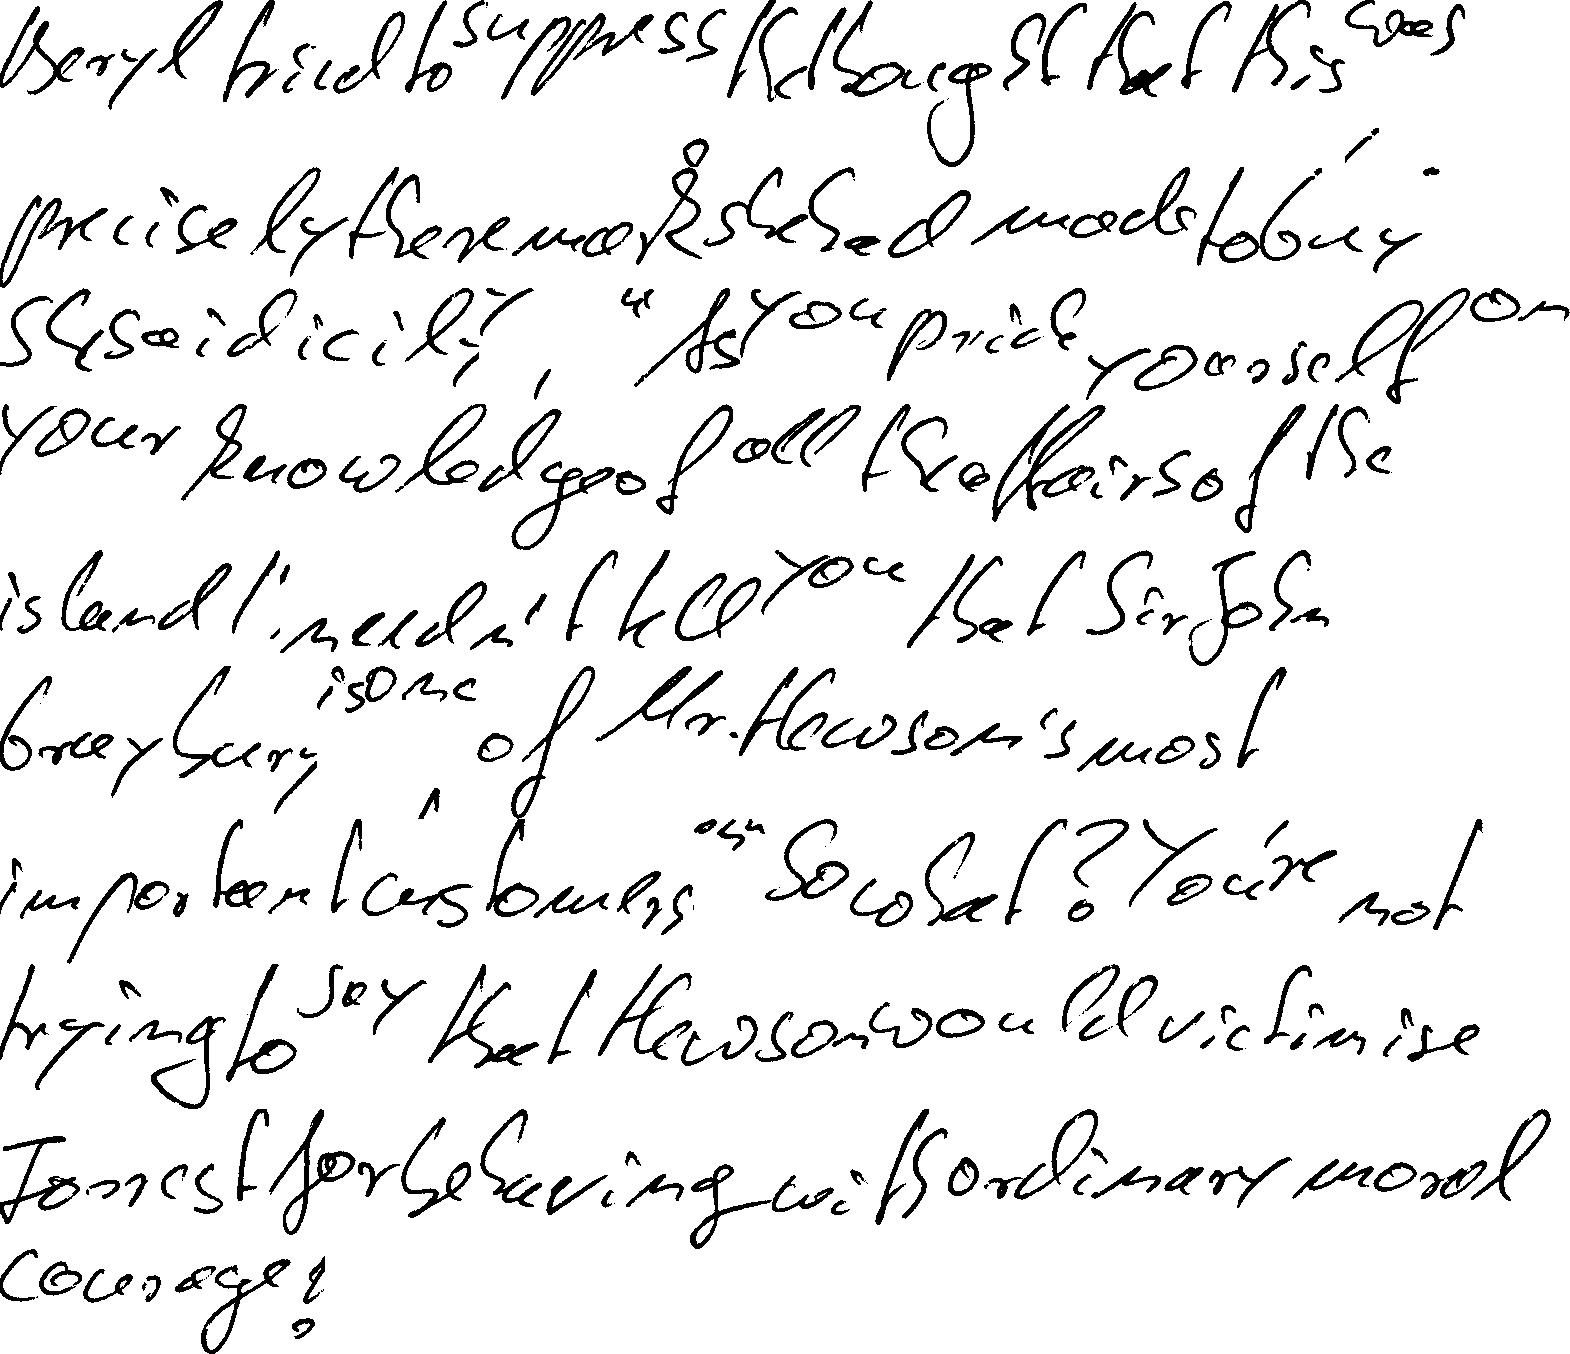 Beryl tried to suppress the thought that this was
precisely the remark she had made to Guy.
She said icily, "As you pride yourself on
your knowledge of all the affairs of the
island I needn't tell you that Sir John
Greybury is one of Mr. Hewson's most
important customers." "So what? You're not
trying to say that Hewson would victimise
for behaving with ordinary moral
courage!